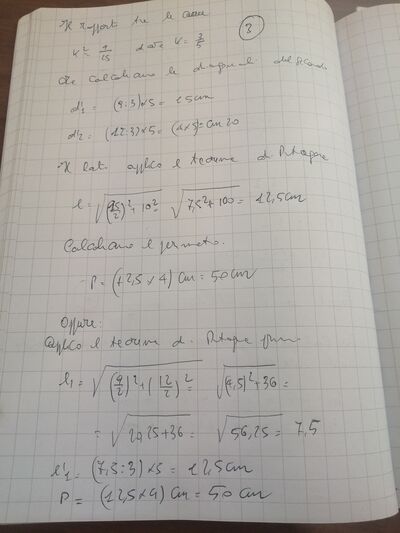 Il rapporto tra le aree ③
k² = 9/25 dove k = 3/5
calcoliamo le diagonali del secondo
d'1 = (9:3)×5 = 15cm
d'2 = (12:3)×5 = (4×5)= cm 20
Il lato applico il teorema di Pitagora
l = √(15/2)²+10² = √7,5²+100 = 12,5cm
Calcoliamo il perimetro.
P = (12,5 × 4) cm = 50cm
Oppure:
applico il teorema di Pitagora
l1 = √(9/2)²+(12/2)² = √(4,5)²+36 =
= √20,25+36 = √56,25 = 7,5
l'1 = (7,5:3)×5 = 12,5cm
P = (12,5×4) cm = 50cm